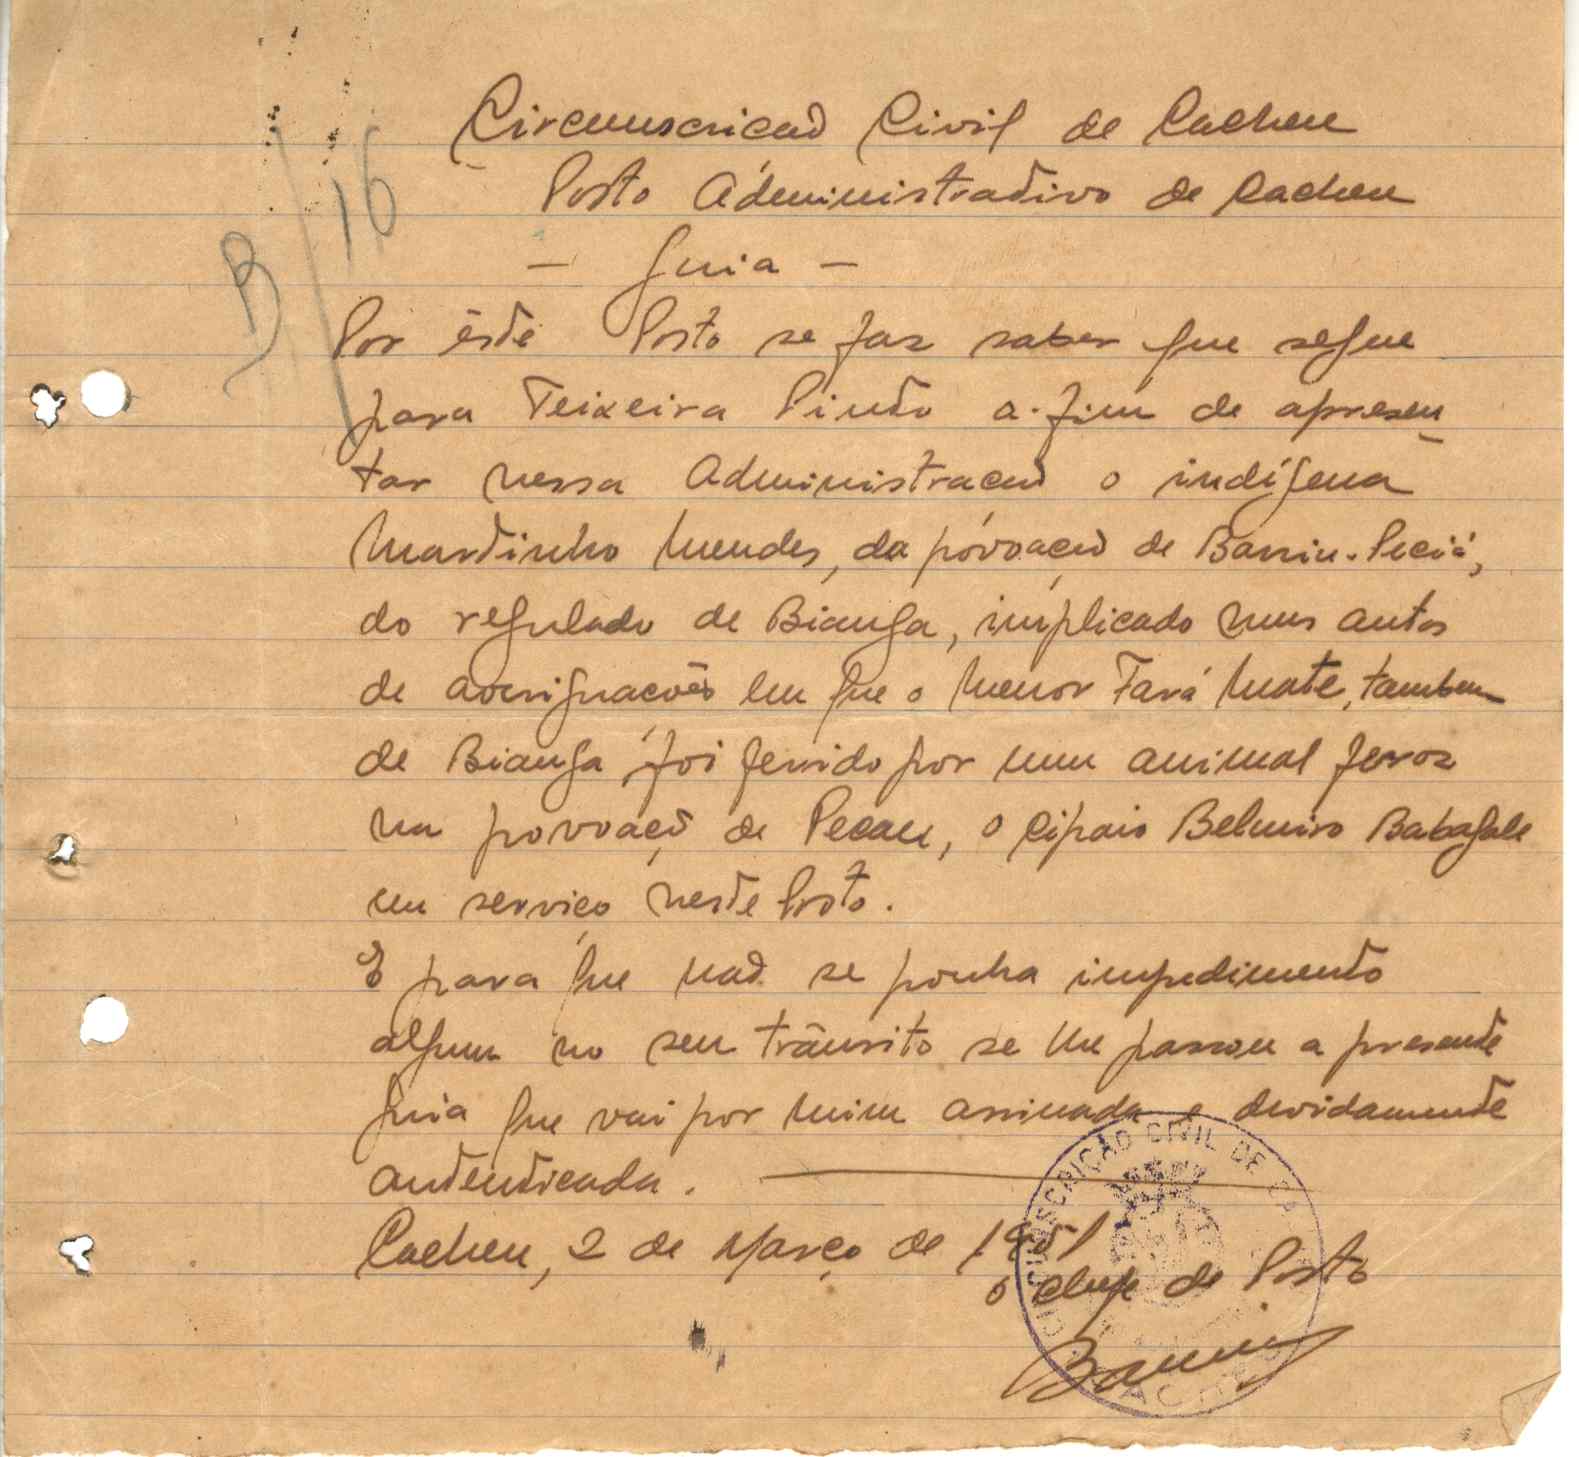 Circunscrição Civil de Cacheu
Posto Administrativo de Cacheu
B/16
- Guia -
Por êste Posto se faz saber que segue
para Teixeira Pinto a-fim de apresen-
tar nessa Administração o indígena
Martinho Mendes, da póvoação de
do regulado de Bianga, implicado nuns autos
de averiguações em que o menor Fará Mate, tambem
de Bianga, foi ferido por um animal feroz
na povoação de Pecau, o cipaio Belmiro
em serviço neste Posto.
E para que não se ponha impedimento
algum no seu trânsito se lhe passou a presente
guia que vai por mim assinada e devidamente
autenticada.
Cacheu, 2 de Março de 1951
O chefe de Posto
CIRCUNSCRIÇÃO CIVIL DE CA